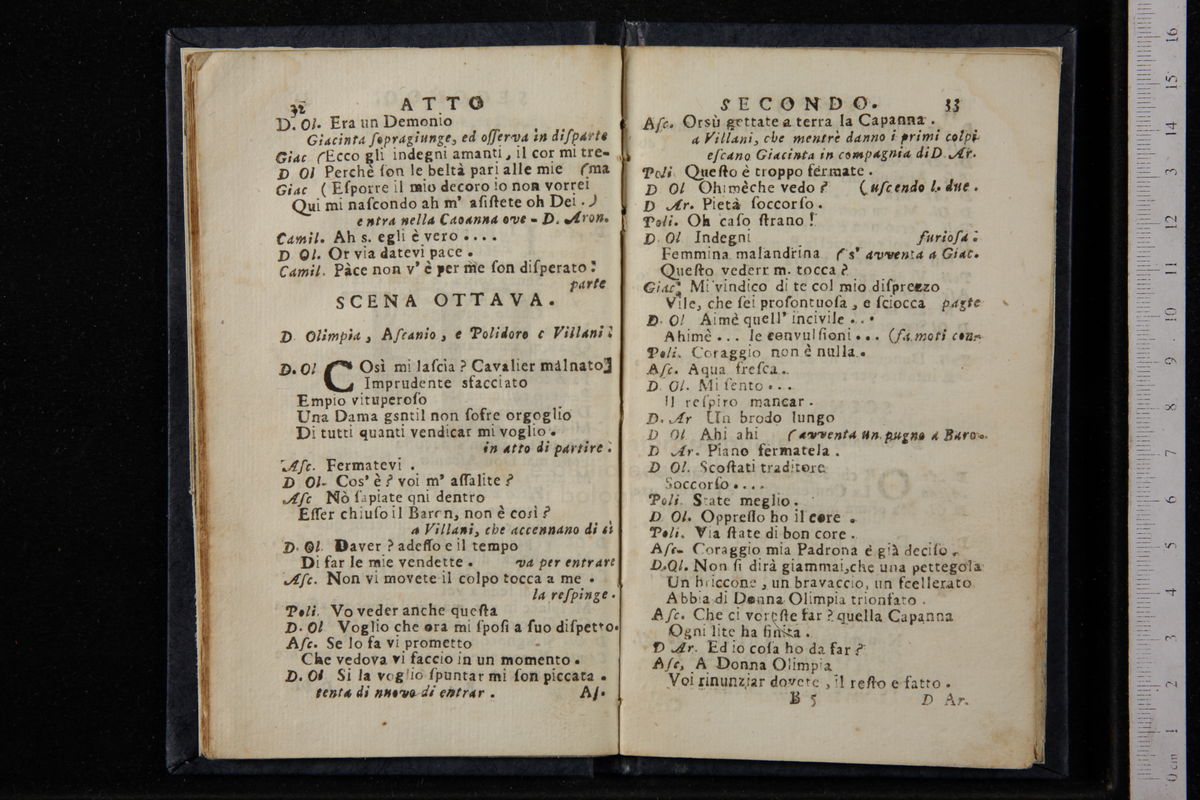 32 ATTO
D. Ol. Era un Demonio
Giacinta ſopragiunge, ed oſſerva in diſparte
Giac (Ecco gli indegni amanti, il cor mi tre-
D Ol Perchè ſon le beltà pari alle mie (ma
Giac ( Eſporre il mio decoro io non vorrei
Qui mi naſcondo ah m' aſiſtete oh Dei .)
entra nella Capanna ove - D. Aron.
Camil. Ah s. egli è vero ....
D Ol. Or via datevi pace .
Camil. Pàce non v' è per me ſon diſperato :
parte
SCENA OTTAVA.
D Olimpia, Aſcanio, e Polidoro e Villani :
D. Ol COsì mi laſcia ? Cavalier málnato
Imprudente sfacciato
Empio vituperoſo
Una Dama gsntil non ſofre orgoglio
Di tutti quanti vendicar mi voglio .
in atto di partire .
Aſc. Fermatevi .
D Ol- Cos' è ? voi m' aſſalite ?
Aſc Nò ſapiate qni dentro
Eſſer chiuſo il Baron, non è così ?
a Villani, che accennano di sì
D. Ol. Daver ? adeſſo e il tempo
Di far le mie vendette . va per entrare
Aſc. Non vi movete il colpo tocca a me .
la reſpinge .
Poli. Vo veder anche queſta
D. Ol Voglio che ora mi ſpoſi a ſuo diſpetto.
Aſc. Se lo fa vi prometto
Che vedova vi faccio in un momento .
D. Ol Si la voglio ſpuntar mi ſon piccata .
tenta di nuovo di entrar . Aſ.
SECONDO. 33
Aſc. Orsù gettate a terra la Capanna .
a Villani, che mentrè danno i primi colpi
eſcano Giacinta in compagnia di D. Ar.
Poli Queſto è troppo férmate .
D Ol Ohimèche vedo ? (uſcendo l. due .
D Ar. Pietà ſoccorſo .
Poli. Oh caſo ſtrano !
D Ol Indegni furioſa :
Femmina malandrina (s' avventa a Giac.
Queſto vederr m. tocca ?
Giac. Mi vindico di te col mio diſprezzo
Vile, che ſei proſontuoſa, e ſciocca parte
D. Ol Aimè quell' incivile ...
Ahimè ... le convulſioni ... (fa moti con-
Poli. Coraggio non è nulla .
Aſc. Aqua freſca .
D Ol. Mi ſento ...
Il reſpiro mancar .
D. Ar Un brodo lungo
D Ol Ahi ahi (avventa un pugno a Baro.
D Ar. Piano fermatela .
D Ol. Scoſtati traditore
Soccorſo ....
Poli. State meglio .
D. Ol. Oppreſſo ho il core .
Poli. Via ſtate di bon core .
Aſc- Coraggio mia Padrona è già deciſo .
D.Ol. Non ſi dirà giammai, che una pettegola
Un briccone, un bravaccio, un ſcellerato
Abbia di Donna Olimpia trionfato .
Aſc. Che ci vereſte far ? quella Capanna
Ogni lite ha finita .
D Ar. Ed io coſa ho da far ?
Aſc, A Donna Olimpia
Voi rinunziar dovete, il reſto e fatto .
B 5 D Ar.
0 cm 1 2 3 4 5 6 7 8 9 10 11 12 13 14 15 16